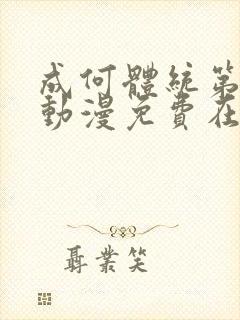 成何體統第
動漫免費在
聶業笑